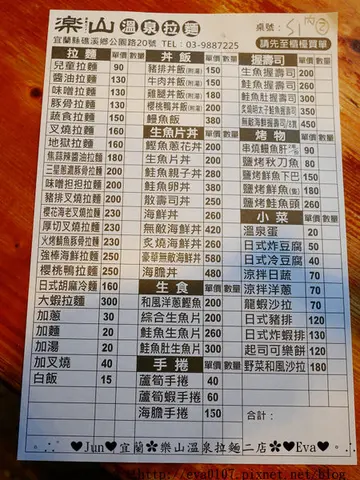 樂山溫泉拉麵
宜蘭縣礁溪鄉公園路20號 TEL：03-9887225
桌號：S1 內
請先至櫃檯買單
拉麵 單價 數量
兒童拉麵 90
醬油拉麵 130
味噌拉麵 130
豚骨拉麵 130
蔬食拉麵 150
叉燒拉麵 160
地獄拉麵 160
焦蒜辣醬油拉麵 180
三星蔥濃豚骨拉麵 190
味噌担担拉麵
豬排叉燒拉麵
櫻花海老叉燒拉麵
厚切叉燒拉麵
火烤鯖魚豚骨拉麵
強棒海鮮拉麵
櫻桃鴨拉麵 250
日式胡麻冷麵 160
大蝦拉麵 300
加蔥 30
加麵 20
加湯 20
加叉燒 40
白飯 15
丼飯 單價 數量
豬排丼飯(附湯) 150
牛肉丼飯(附湯) 150
雞腿丼飯(附湯)
櫻桃鴨丼飯(附湯)
鰻魚飯
生魚片丼 單價 數量
鰹魚蔥花丼 200
生魚片丼 200
鮭魚親子丼
鮭魚卵丼
散壽司丼
海鮮丼
無敵海鮮丼
炙燒海鮮丼
豪華無敵海鮮丼
海膽丼 480
生食 單價 數量
和風洋蔥鰹魚
綜合生魚片
鮭魚生魚片
鮭魚肚生魚片 300
手捲 單價 數量
蘆筍手捲 40
蘆筍蝦手捲 60
海膽手捲 150
握壽司 單價 數量
生魚握壽司 200
鮭魚握壽司
鮭魚肚握壽司
炙燒明太子鮭魚握壽司 350
無敵海鮮握壽司 450
烤物 單價 數量
串燒鰻魚肝
鹽烤秋刀魚
鹽烤鮭魚下巴
鹽烤鯖魚
鹽烤鮭魚頭 260
小菜 單價 數量
溫泉蛋 20
日式冷豆腐 50
日式炸豆腐
涼拌日蔬
涼拌洋蔥
龍蝦沙拉
日式豬排 120
日式炸蝦 120
起司可樂餅 120
野菜和風沙拉 180
合計：
♥Jun♥宜蘭✿樂山溫泉拉麵二店✿♥Eva♥
http://eva0107.pixnet.net/blog